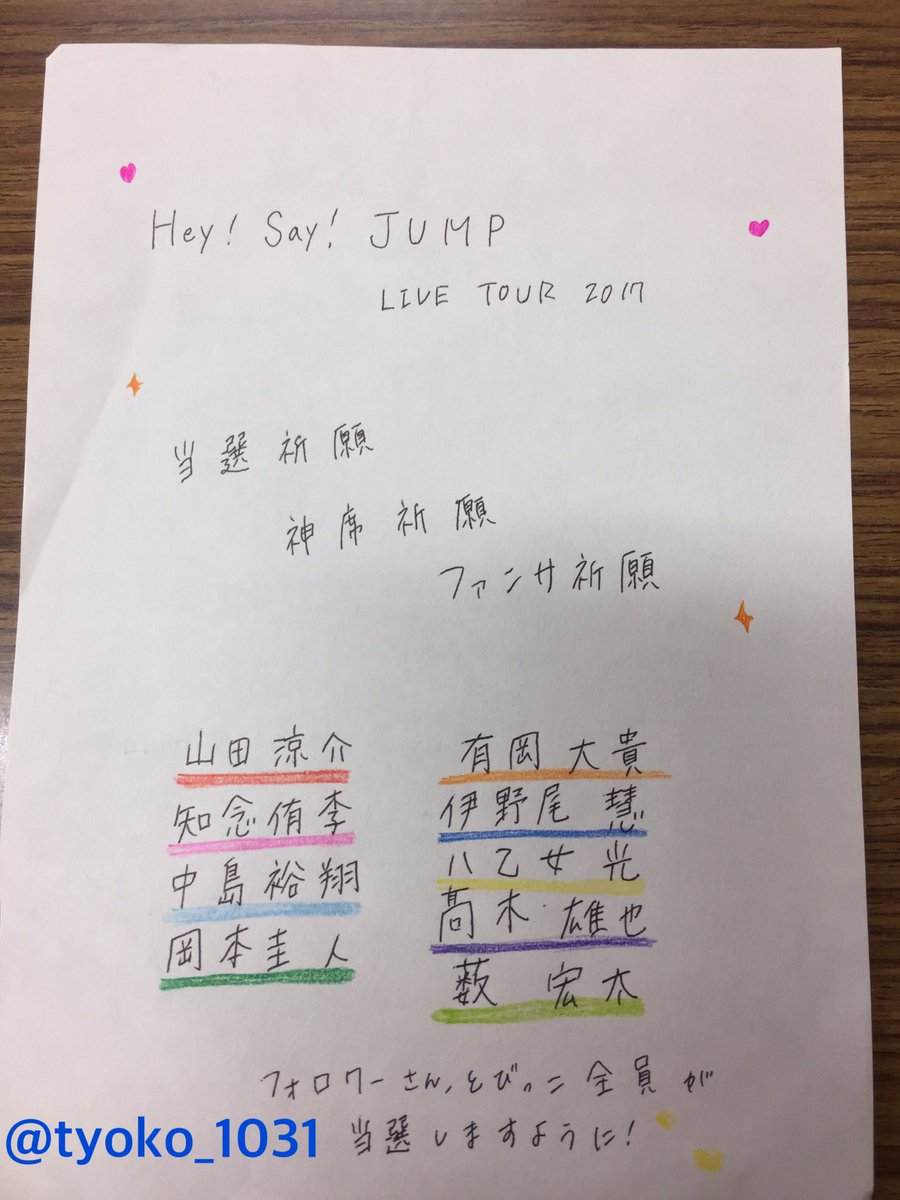 Hey! Say! JUMP
LIVE TOUR 2017
当選祈願
神席祈願
ファンサ祈願
山田涼介
知念侑李
中島裕翔
岡本圭人
有岡大貴
伊野尾慧
八乙女光
髙木雄也
薮宏太
フォロワーさん、とびっこ全員が
当選しますように!
@tyoko_1031